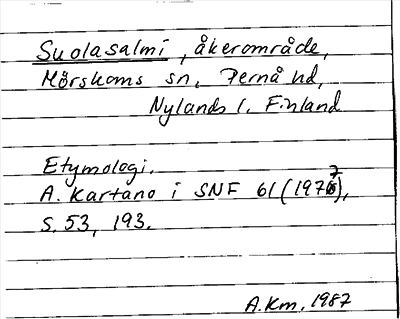 Suolasalmi, åkerområde,
Mörskoms sn, Pernå hd,
Nylands l. Finland
Etymologi.
A. Kartano i SNF 61 (1977),
s. 53, 193.
A.Km. 1987